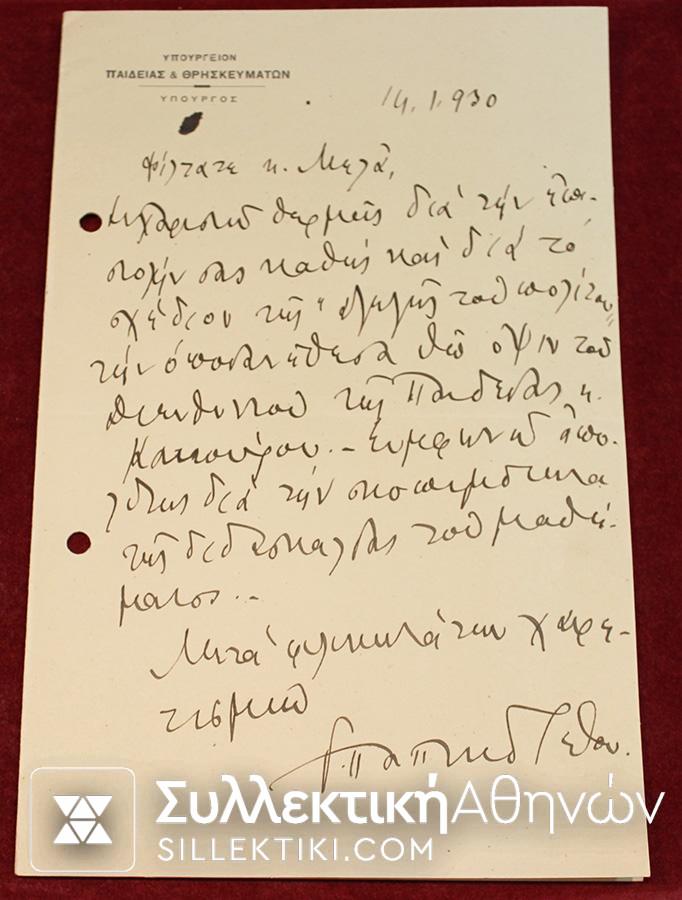 ΥΠΟΥΡΓΕΙΟΝ
ΠΑΙΔΕΙΑΣ & ΘΡΗΣΚΕΥΜΑΤΩΝ
ΥΠΟΥΡΓΟΣ
14.1.930
Φίλτατε κ. Μελᾶ,
Εὐχαριστῶ θερμῶς διά τήν ἐπι-
στολήν σας καθώς καί διά τό
σχέδιον τῆς "ἀγωγῆς τοῦ πολίτου"
τήν ὁποίαν ἔθεσα ὑπ' ὄψιν τοῦ
διευθυντοῦ τῆς Παιδείας κ.
Συμφωνῶ ἀπο-
λύτως διά τήν σκοπιμότητα
τῆς διδασκαλίας τοῦ μαθή-
ματος..-
Μετά φιλικωτάτων χαιρε-
τισμῶν
Γ. Παπανδρέου.
ΣυλλεκτικήΑθηνών
SILLEKTIKI.COM